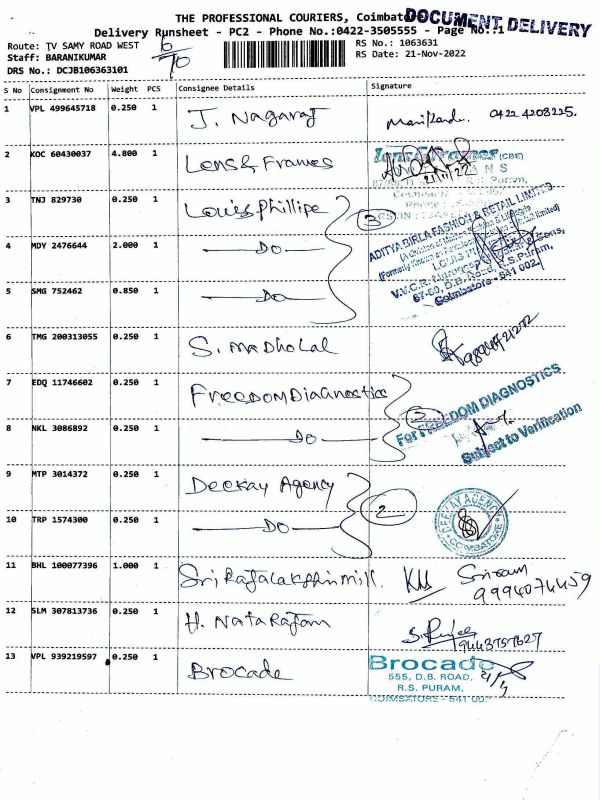 THE PROFESSIONAL COURIERS, Coimbat
DOCUMENT DELIVERY
Delivery Runsheet - PC2 - Phone No.:0422-3505555 - Page No.:1
Route: TV SAMY ROAD WEST
6/70
RS No.: 1063631
Staff: BARANIKUMAR
RS Date: 21-Nov-2022
DRS No.: DCJB106363101
S No Consignment No Weight PCS Consignee Details Signature
1 VPL 499645718 0.250 1 J. Nagaraj 0422 4208225.
2 KOC 60430037 4.800 1 Lens & Frames
(CBE)
21/11/22
3 TNJ 829730 0.250 1 Louis Phillipe 3
ADITYA BIRLA FASHION & RETAIL LIMITED
4 MDY 2476644 2.000 1 — DO —
67-69, D.B. Road, R.S.Puram,
Coimbatore - 641 002
5 SMG 752462 0.850 1 — DO —
6 TMG 200313055 0.250 1 S. Madholal
7 EDQ 11746602 0.250 1 Freedom Diagnostics
For FREEDOM DIAGNOSTICS
8 NKL 3086892 0.250 1 — DO —
Subject to Verification
9 MTP 3014372 0.250 1 Deekay Agency 2
DEEKAY AGENCY
COIMBATORE
10 TRP 1574300 0.250 1 — DO —
11 BHL 100077396 1.000 1 Sri Rajalakshmi mill. Sriram
9994074459
12 SLM 307813736 0.250 1 H. Natarajan
9443757627
13 VPL 939219597 0.250 1 Brocade
Brocade
555, D.B. ROAD,
R.S. PURAM,
COIMBATORE - 641 002